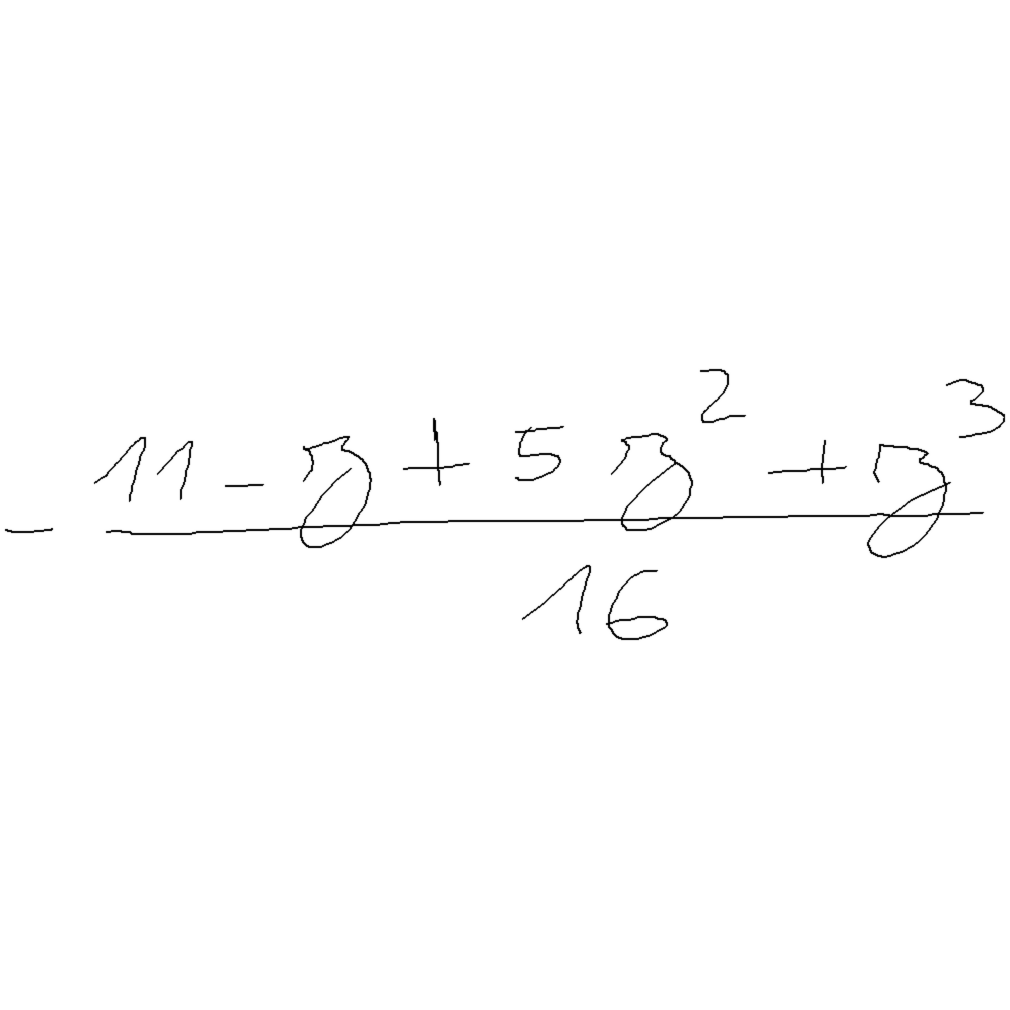 - \frac{11 - z + 5 z^2 + z^3}{16}